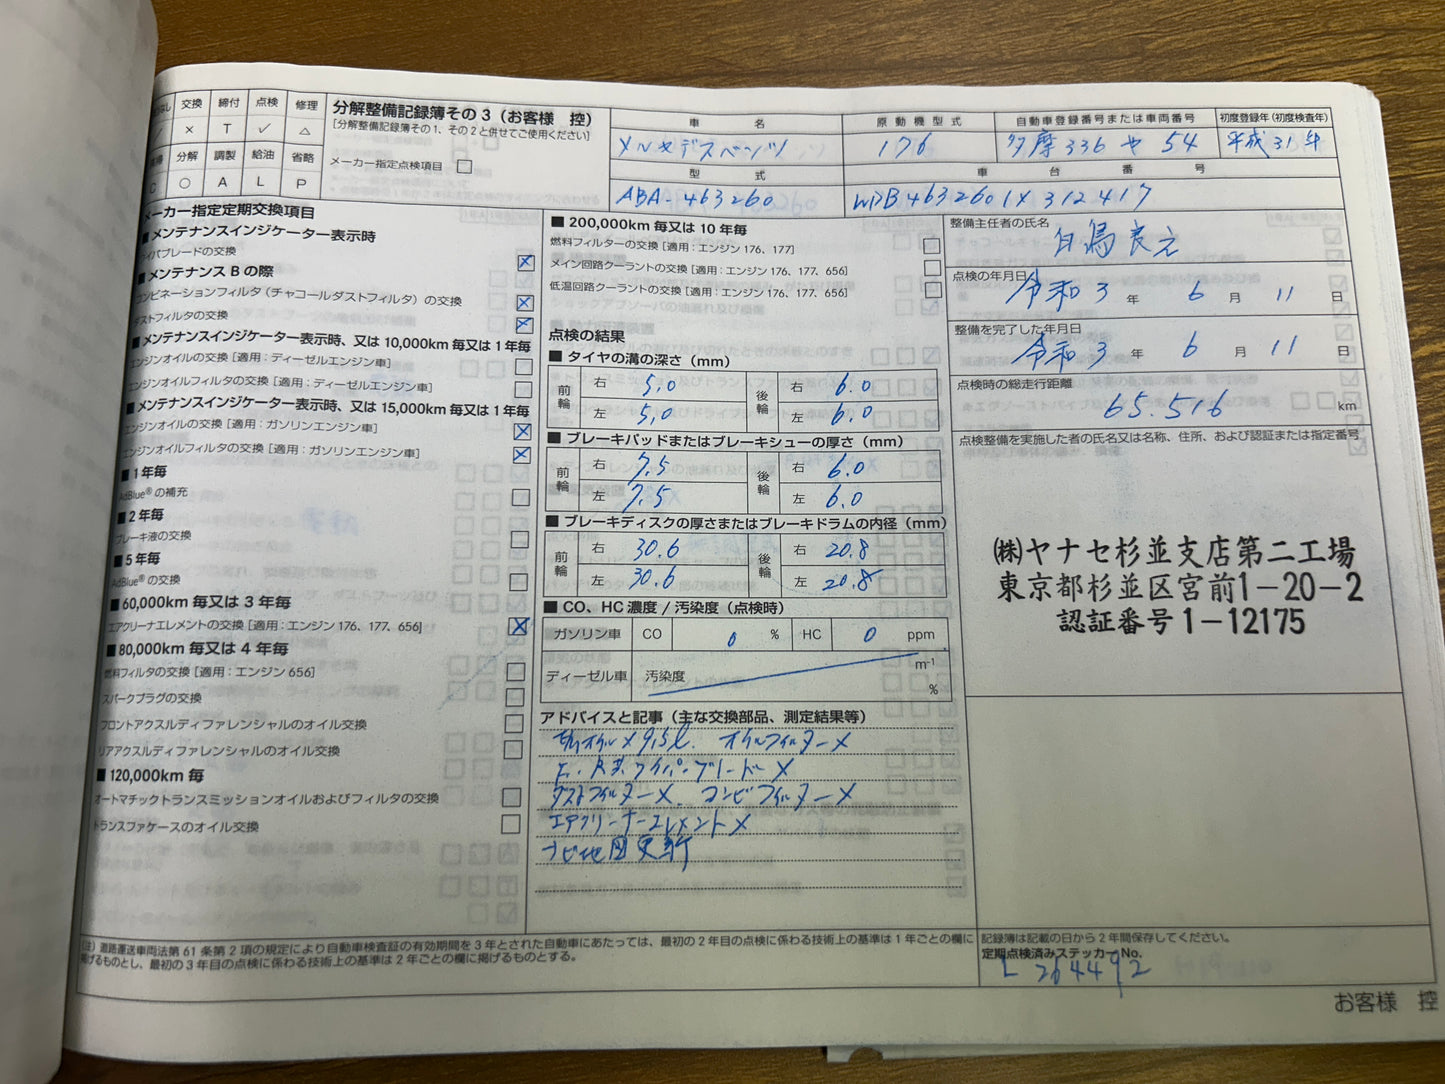 交換 締付 点検 修理
× T ✓ △
分解 調製 給油 省略
C ○ A L P
分解整備記録簿その3（お客様 控）
[分解整備記録簿その1、その2と併せてご使用ください]
メーカー指定点検項目 □
車 名
メルセデスベンツ
原動機型式
176
自動車登録番号または車両番号
多摩 336 や 54
初度登録年（初度検査年）
平成31年
型 式
ABA-463260
車 台 番 号
WDB4632601X312417
メーカー指定定期交換項目
■ メンテナンスインジケーター表示時
ワイパブレードの交換
■ メンテナンス B の際
コンビネーションフィルタ（チャコールダストフィルタ）の交換
ダストフィルタの交換
■ メンテナンスインジケーター表示時、又は 10,000km 毎又は 1 年毎
エンジンオイルの交換 [適用：ディーゼルエンジン車]
エンジンオイルフィルタの交換 [適用：ディーゼルエンジン車]
■ メンテナンスインジケーター表示時、又は 15,000km 毎又は 1 年毎
エンジンオイルの交換 [適用：ガソリンエンジン車]
エンジンオイルフィルタの交換 [適用：ガソリンエンジン車]
■ 1 年毎
AdBlue® の補充
■ 2 年毎
ブレーキ液の交換
■ 5 年毎
AdBlue® の交換
■ 60,000km 毎又は 3 年毎
エアクリーナエレメントの交換 [適用：エンジン 176、177、656]
■ 80,000km 毎又は 4 年毎
燃料フィルタの交換 [適用：エンジン 656]
スパークプラグの交換
フロントアクスルディファレンシャルのオイル交換
リアアクスルディファレンシャルのオイル交換
■ 120,000km 毎
オートマチックトランスミッションオイルおよびフィルタの交換
トランスファケースのオイル交換
■ 200,000km 毎又は 10 年毎
燃料フィルターの交換 [適用：エンジン 176、177]
メイン回路クーラントの交換 [適用：エンジン 176、177、656]
低温回路クーラントの交換 [適用：エンジン 176、177、656]
点検の結果
■ タイヤの溝の深さ（mm）
前輪 右 5.0 後輪 右 6.0
左 5.0 左 6.0
■ ブレーキパッドまたはブレーキシューの厚さ（mm）
前輪 右 7.5 後輪 右 6.0
左 7.5 左 6.0
■ ブレーキディスクの厚さまたはブレーキドラムの内径（mm）
前輪 右 30.6 後輪 右 20.8
左 30.6 左 20.8
■ CO、HC 濃度 / 汚染度（点検時）
ガソリン車 CO 0 % HC 0 ppm
ディーゼル車 汚染度 m⁻¹
%
アドバイスと記事（主な交換部品、測定結果等）
オイル× 9.5ℓ. オイルフィルター×
ワイパーブレード×
ダストフィルター×. コンビフィルター×
エアクリーナーエレメント×
ナビ地図更新
整備主任者の氏名
点検の年月日
令和 3 年 6 月 11 日
整備を完了した年月日
令和 3 年 6 月 11 日
点検時の総走行距離
65.516 km
点検整備を実施した者の氏名又は名称、住所、および認証または指定番号
㈱ヤナセ杉並支店第二工場
東京都杉並区宮前1－20－2
認証番号1－12175
(注) 道路運送車両法第 61 条第 2 項の規定により自動車検査証の有効期間を 3 年とされた自動車にあたっては、最初の 2 年目の点検に係わる技術上の基準は 1 年ごとの欄に
掲げるものとし、最初の 3 年目の点検に係わる技術上の基準は 2 年ごとの欄に掲げるものとする。
記録簿は記載の日から 2 年間保存してください。
定期点検済みステッカー No.
L 264492
お客様 控